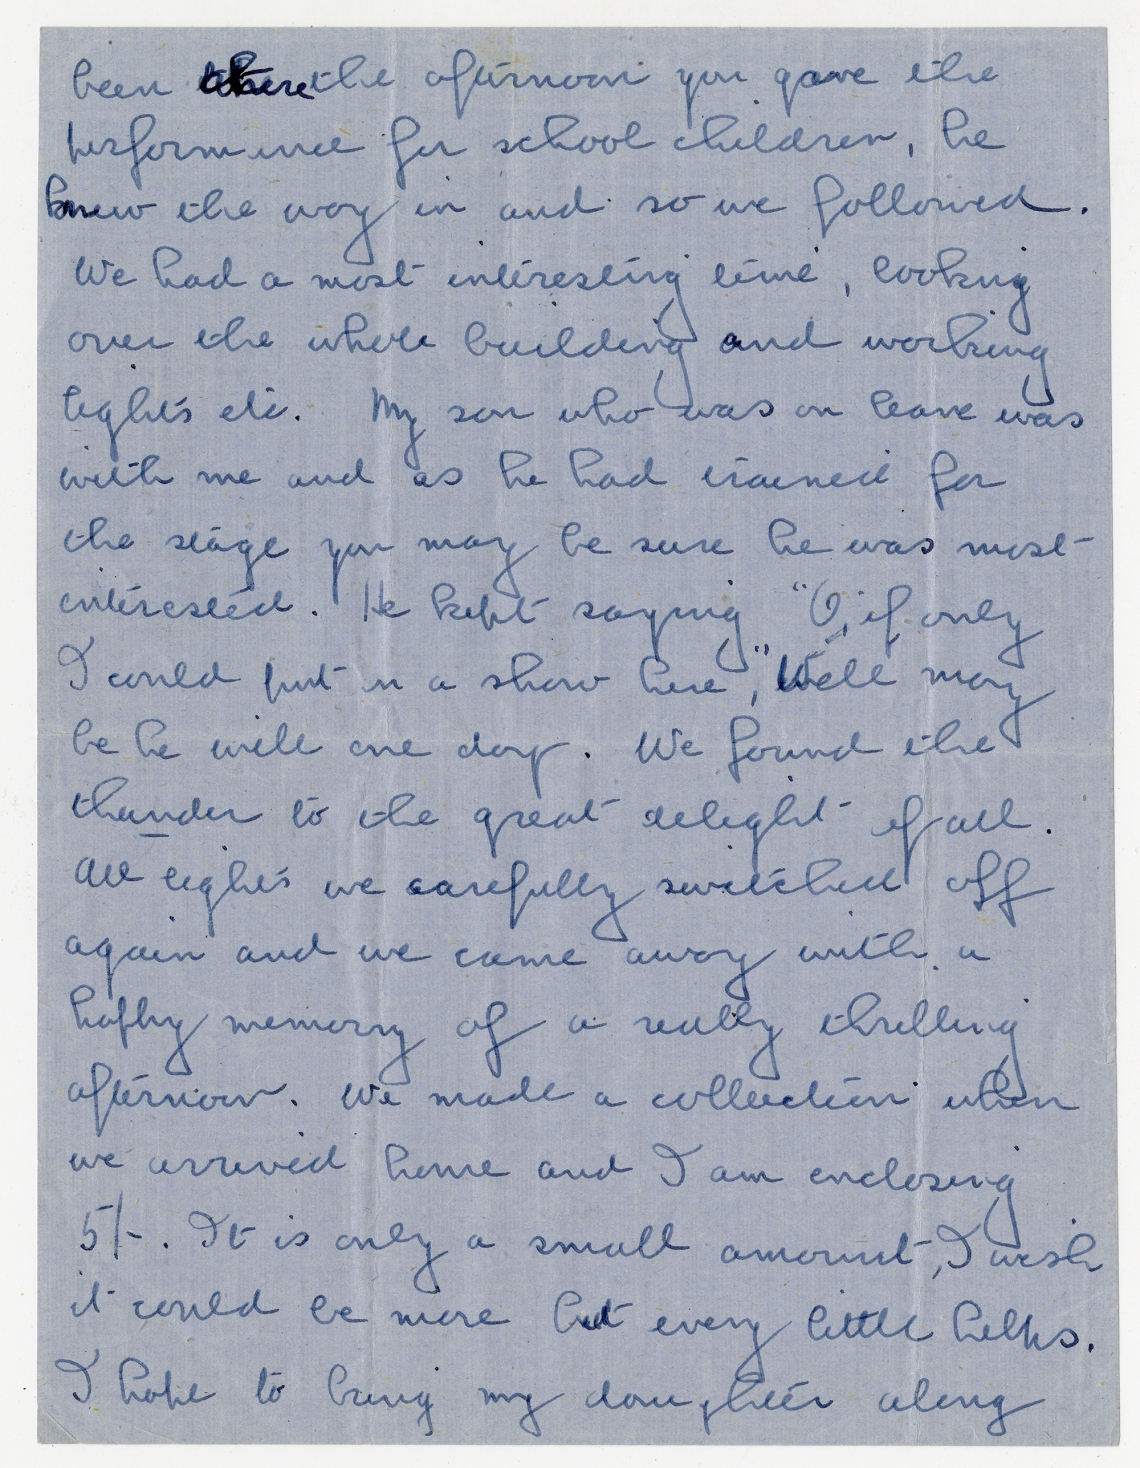 been there the afternoon you gave the
performance for school children, he
knew the way in and so we followed.
We had a most interesting time, looking
over the whole building and working
lights etc. My son who was on leave was
with me and as he had trained for
the stage you may be sure he was most
interested. He kept saying "O, if only
I could put on a show here," Well may
be he will one day. We found the
thunder to the great delight of all.
All lights we carefully switched off
again and we came away with a
happy memory of a really thrilling
afternoon. We made a collection when
we arrived home and I am enclosing
5/-. It is only a small amount, I wish
it could be more but every little helps.
I hope to bring my daughter along